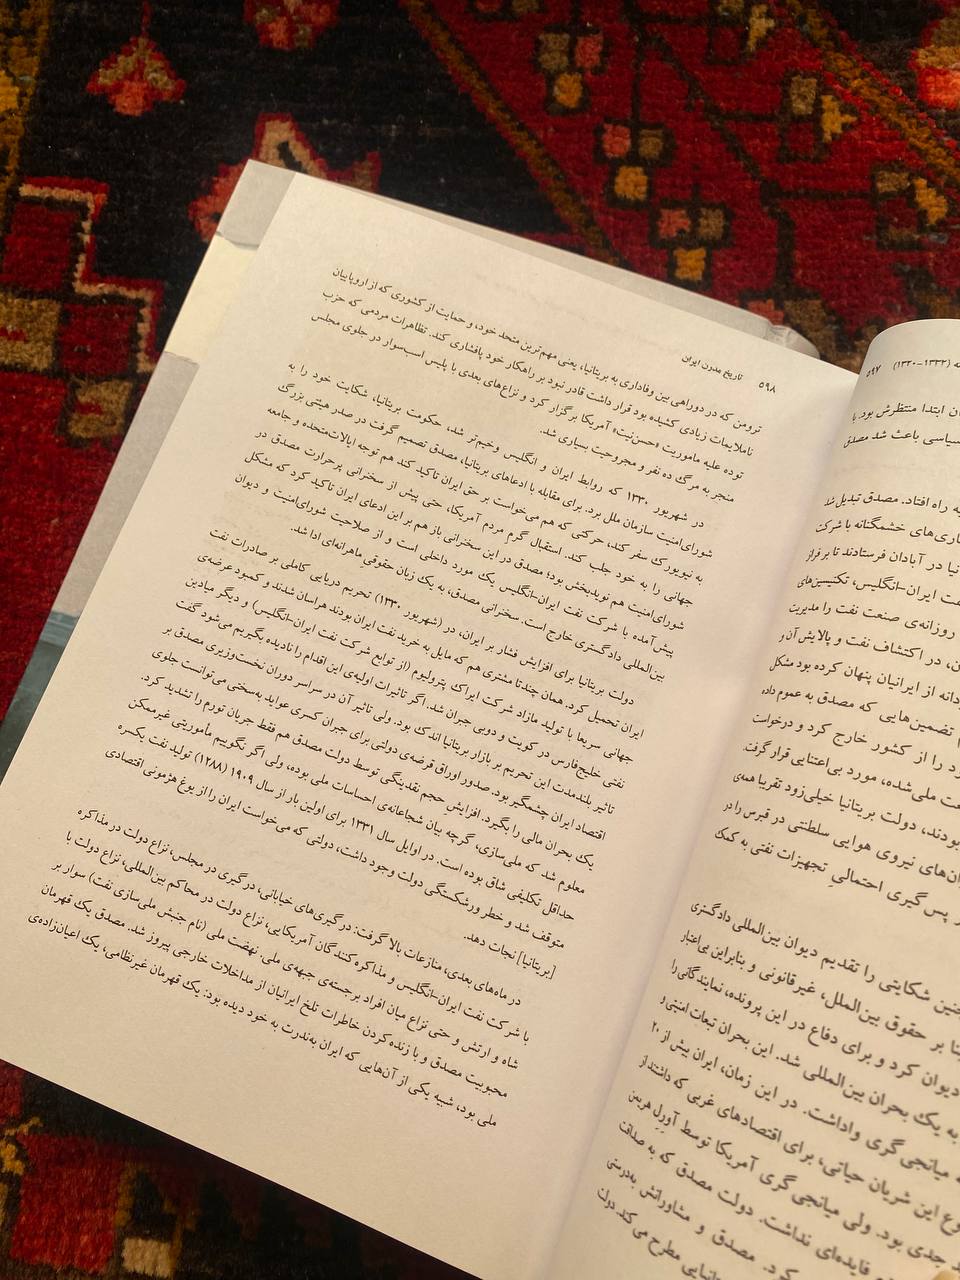 ۵۹۷
(۱۳۲۰–۱۳۳۲)
ان ابتدا منتظرش بود. با
سیاسی باعث شد مصدق
به راه افتاد. مصدق تبدیل شد
اری‌های خشمگنانه با شرکت
نیا در آبادان فرستادند تا بر فراز
فت ایران-انگلیس، تکنیسین‌های
روزانه‌ی صنعت نفت را مدیریت
ن، در اکتشاف نفت و پالایش آن و
دانه از ایرانیان پنهان کرده بود مشکل
تضمین‌هایی که مصدق به عموم داده
د را از کشور خارج کرد و درخواست
ت ملی‌شده، مورد بی‌اعتنایی قرار گرفت.
بودند، دولت بریتانیا خیلی‌زود تقریبا همه‌ی
ان‌های نیروی هوایی سلطنتی در قبرس را در
پس‌گیری احتمالیِ تجهیزات نفتی به کمک
چنین شکایتی را تقدیم دیوان بین‌المللی دادگستری
بنا بر حقوق بین‌الملل، غیرقانونی و بنابراین بی‌اعتبار
دیوان کرد و برای دفاع در این پرونده، نمایندگانی را
به یک بحران بین‌المللی شد. این بحران تبعات امنیتی و
میانجی‌گری واداشت. در این زمان، ایران بیش از ۲۰
وع این شریان حیاتی، برای اقتصادهای غربی که داشتند از
جدی بود. ولی میانجی‌گری آمریکا توسط آورِل هریمن
فایده‌ای نداشت. دولت مصدق که به صداقت
کرد. مصدق و مشاورانش به‌درستی
مطرح می کند. دولت
۵۹۸
تاریخ مدرن ایران
ترومن که در دوراهی بین وفاداری به بریتانیا، یعنی مهم‌ترین متحد خود، و حمایت از کشوری که از اروپاییان
ناملایمات زیادی کشیده بود قرار داشت قادر نبود بر راهکار خود پافشاری کند. تظاهرات مردمی که حزب
توده علیه ماموریت «حسن‌نیت» آمریکا برگزار کرد و نزاع‌های بعدی با پلیس اسب‌سوار در جلوی مجلس
منجر به مرگ ده نفر و مجروحیت بسیاری شد.
در شهریور ۱۳۳۰ که روابط ایران و انگلیس وخیم‌تر شد، حکومت بریتانیا، شکایت خود را به
شورای‌امنیت سازمان ملل برد. برای مقابله با ادعاهای بریتانیا، مصدق تصمیم گرفت در صدر هیئتی بزرگ
به نیویورک سفر کند، حرکتی که هم می‌خواست بر حق ایران تاکید کند هم توجه ایالات‌متحده و جامعه
جهانی را به خود جلب کند. استقبال گرم مردم آمریکا، حتی پیش از سخنرانی پرحرارت مصدق در
شورای‌امنیت هم نویدبخش بود؛ مصدق در این سخنرانی باز هم بر این ادعای ایران تاکید کرد که مشکل
پیش‌آمده با شرکت نفت ایران-انگلیس یک مورد داخلی است و از صلاحیت شورای‌امنیت و دیوان
بین‌المللی دادگستری خارج است. سخنرانی مصدق، به یک زبان حقوقیِ ماهرانه‌ای ادا شد.
دولت بریتانیا برای افزایش فشار بر ایران، در (شهریور ۱۳۳۰) تحریم دریایی کاملی بر صادرات نفت
ایران تحمیل کرد. همان چندتا مشتری هم که مایل به خرید نفت ایران بودند هراسان شدند و کمبود عرضه‌ی
جهانی سریعا با تولید مازاد شرکت ایراک پترولیوم (از توابع شرکت نفت ایران-انگلیس) و دیگر میادین
نفتی خلیج‌فارس در کویت و دوبی جبران شد. اگر تاثیرات اولیه‌ی این اقدام را نادیده بگیریم می‌شود گفت
تاثیر بلندمدت این تحریم بر بازار بریتانیا اندک بود. ولی تاثیر آن در سراسر دوران نخست‌وزیری مصدق بر
اقتصاد ایران چشمگیر بود. صدور اوراق قرضه‌ی دولتی برای جبران کسری عواید به‌سختی می‌توانست جلوی
یک بحران مالی را بگیرد. افزایشِ حجم نقدینگی توسط دولت مصدق هم فقط جریان تورم را تشدید کرد.
معلوم شد که ملی‌سازی، گرچه بیان شجاعانه‌ی احساسات ملی بوده، ولی اگر نگوییم مأموریتی غیرممکن
حداقل تکلیفی شاق بوده است. در اوایل سال ۱۳۳۱ برای اولین بار از سال ۱۹۰۹ (۱۲۸۸) تولید نفت یکسره
متوقف شد و خطر ورشکستگی دولت وجود داشت، دولتی که می‌خواست ایران را از یوغ هژمونی اقتصادی
[بریتانیا] نجات دهد.
در ماه‌های بعدی، منازعات بالا گرفت: درگیری‌های خیابانی، درگیری در مجلس، نزاع دولت در مذاکره
با شرکت نفت ایران-انگلیس و مذاکره‌کنندگان آمریکایی، نزاع دولت در محاکم بین‌المللی، نزاع دولت با
شاه و ارتش و حتی نزاع میان افراد برجسته‌ی جبهه‌ی ملی. نهضت ملی (نام جنبش ملی‌سازی نفت) سوار بر
محبوبیت مصدق و با زنده کردن خاطرات تلخ ایرانیان از مداخلات خارجی پیروز شد. مصدق یک قهرمان
ملی بود، شبیه یکی از آن‌هایی که ایران به‌ندرت به خود دیده بود: یک قهرمان غیرنظامی، یک اعیان‌زاده‌ی